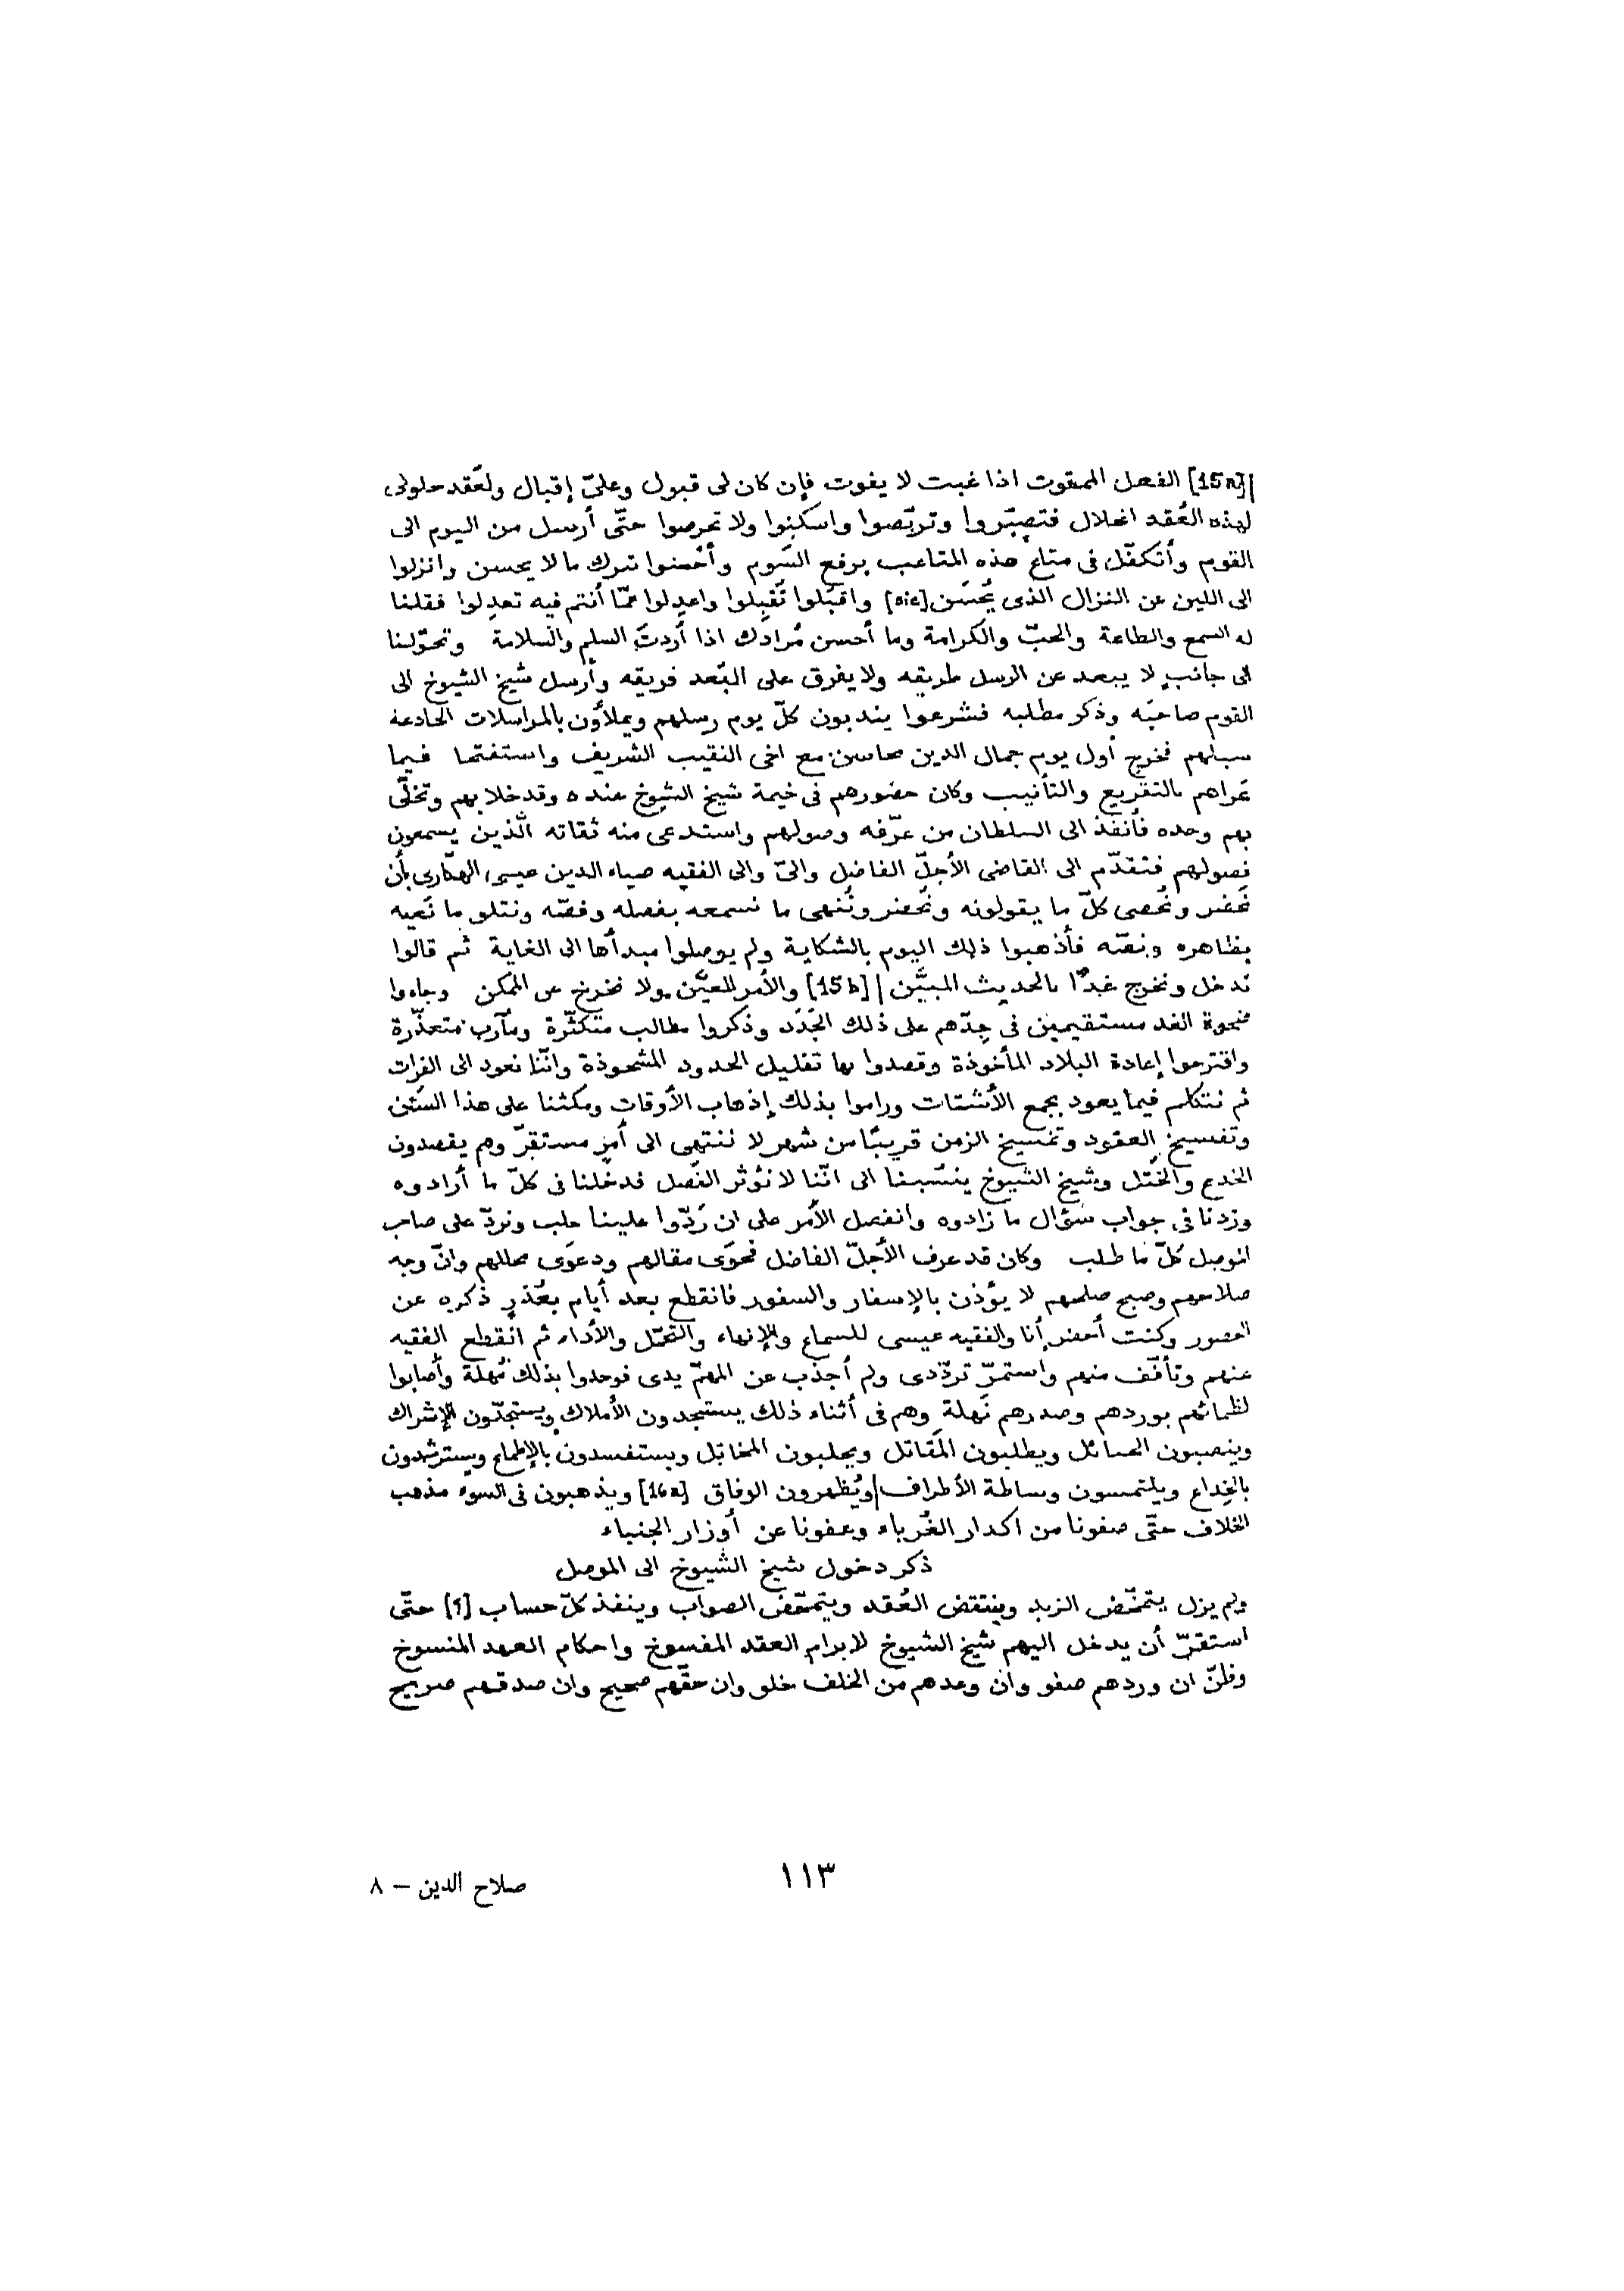 |[15a] الفعل الممقوت اذا غبت لا يفوت فإن كان لى قبول وعلىّ إقبال ولعَقد حلولى
لهذه العُقد انحلال فتصبّروا وتربّصوا واسكنوا ولا تحرصوا حتّى أرسل من اليوم الى
القوم وأتكفّل فى متاع هذه المتاعب برفع السَوم وأحْسنوا بترك ما لا يحسن وانزلوا
الى اللين عن النزال الذى يُخشَن [sic] واقبَلوا تُقبِلوا واعدِلوا عمّا أنتم فيه تعدِلوا فقلنا
له السمع والطاعة والحبّ والكرامة وما أحسن مُرادك اذا أردتَ السلم والسلامة وتحوّلنا
الى جانبٍ لا يبعد عن الرسل طريقه ولا يفرق على البُعد فريقه وأرسل شيخ الشيوخ الى
القوم صاحبَه وذكر مطلبه فشرعوا يندبون كلّ يوم رسلهم ويملأون بالمراسلات الخادعة
سبلهم فخرج أول يوم جمال الدين محاسن مع اخى النقيب الشريف واستفتحا فيما
عَراهم بالتقريع والتأنيب وكان حضورهم فى خيمة شيخ الشيوخ عنده وقد خلا بهم وتخلّى
بهم وحده فأنفذ الى السلطان من عرّفه وصولهم واستدعى منه ثقاته الّذين يسمعون
فصولهم فتقدّم الى القاضى الأجلّ الفاضل والىّ والى الفقيه ضياء الدين عيسى الهكّارى بأن
نَحضر ونُحصى كلّ ما يقولونه ونَحضر ونُنهى ما نسمعه بفصله وفصّه ونتلو ما نَعيه
بظاهره ونصّه فأذهبوا ذلك اليوم بالشكاية ولم يوصلوا مبدأها الى الغاية ثم قالوا
ندخل ونخرج غدًا بالحديث المبيَّن |[15b] والأمر المعيَّن ولا نخرج عن الممكن وجاءوا
ضحوة الغد مستقيمين فى جِدّهم على ذلك الجَدَد وذكروا مطالب متكثّرة ومآرب متعذّرة
واقترحوا إعادة البلاد المأخوذة وقصدوا بها تفليل الحدود المشحوذة وانّنا نعود الى الفرات
ثم نتكلم فيما يعود بجمع الأشتات وراموا بذلك إذهاب الأوقات ومكثنا على هذا السَنَن
وتفسيخ العقود وتفسيخ الزمن قريبًا من شهر لا ننتهى الى أمرٍ مستقرّ وهم يقصدون
الخدع والخَتل وشيخ الشيوخ ينسُبنا الى انّنا لا نؤثر الفَصل فدخلنا فى كلّ ما أرادوه
وزدنا فى جواب سُؤال ما زادوه وانفصل الأمر على ان رَدّوا علينا حلب ونردّ على صاحب
الموصل كلّ ما طلب وكان قد عرف الأجلّ الفاضل فحوَى مقالهم ودعوَى محالهم وانّ وجه
صلاحهم وصبح صلحهم لا يؤذن بالإسفار والسفور فانقطع بعد أيام بعُذرٍ ذكره عن
الحضور وكنت أحضر أنا والفقيه عيسى للسماع والإنهاء والتحمّل والأداء ثم انقطع الفقيه
عنهم وتأفّف منهم واستمرّ تردّدى ولم أجذب عن المهمّ يدى فوجدوا بذلك مُهلة وأصابوا
لظمائهم بوردهم وصدرهم نَهلة وهم فى أثناء ذلك يستنجدون الأملاك ويستجدّون الإشراك
وينصبون الحبائل ويطلبون المَقاتل ويجلبون المخاتل ويستفسدون بالإطماع ويسترشدون
بالخِداع ويلتمسون وساطة الأطراف|ويُظهرون الوفاق [16a] ويذهبون فى السوء مذهب
الخلاف حتّى صفونا من اكدار الغُرباء وعفونا عن أوزار الجنباء
ذكر دخول شيخ الشيوخ الى الموصل
ولم يزل يتمخّض الزبد وينتقض العُقد ويتمحّض الصواب وينفذ كلّ حساب [1] حتّى
استقرّ أن يدخل اليهم شيخ الشيوخ لابرام العقد المفسوخ واحكام العهد المنسوخ
وظنّ ان وردهم صفو وان وعدهم من الخلف خلو وان حقّهم صحيح وان صدقهم صريح
١١٣
صلاح الدين – ٨